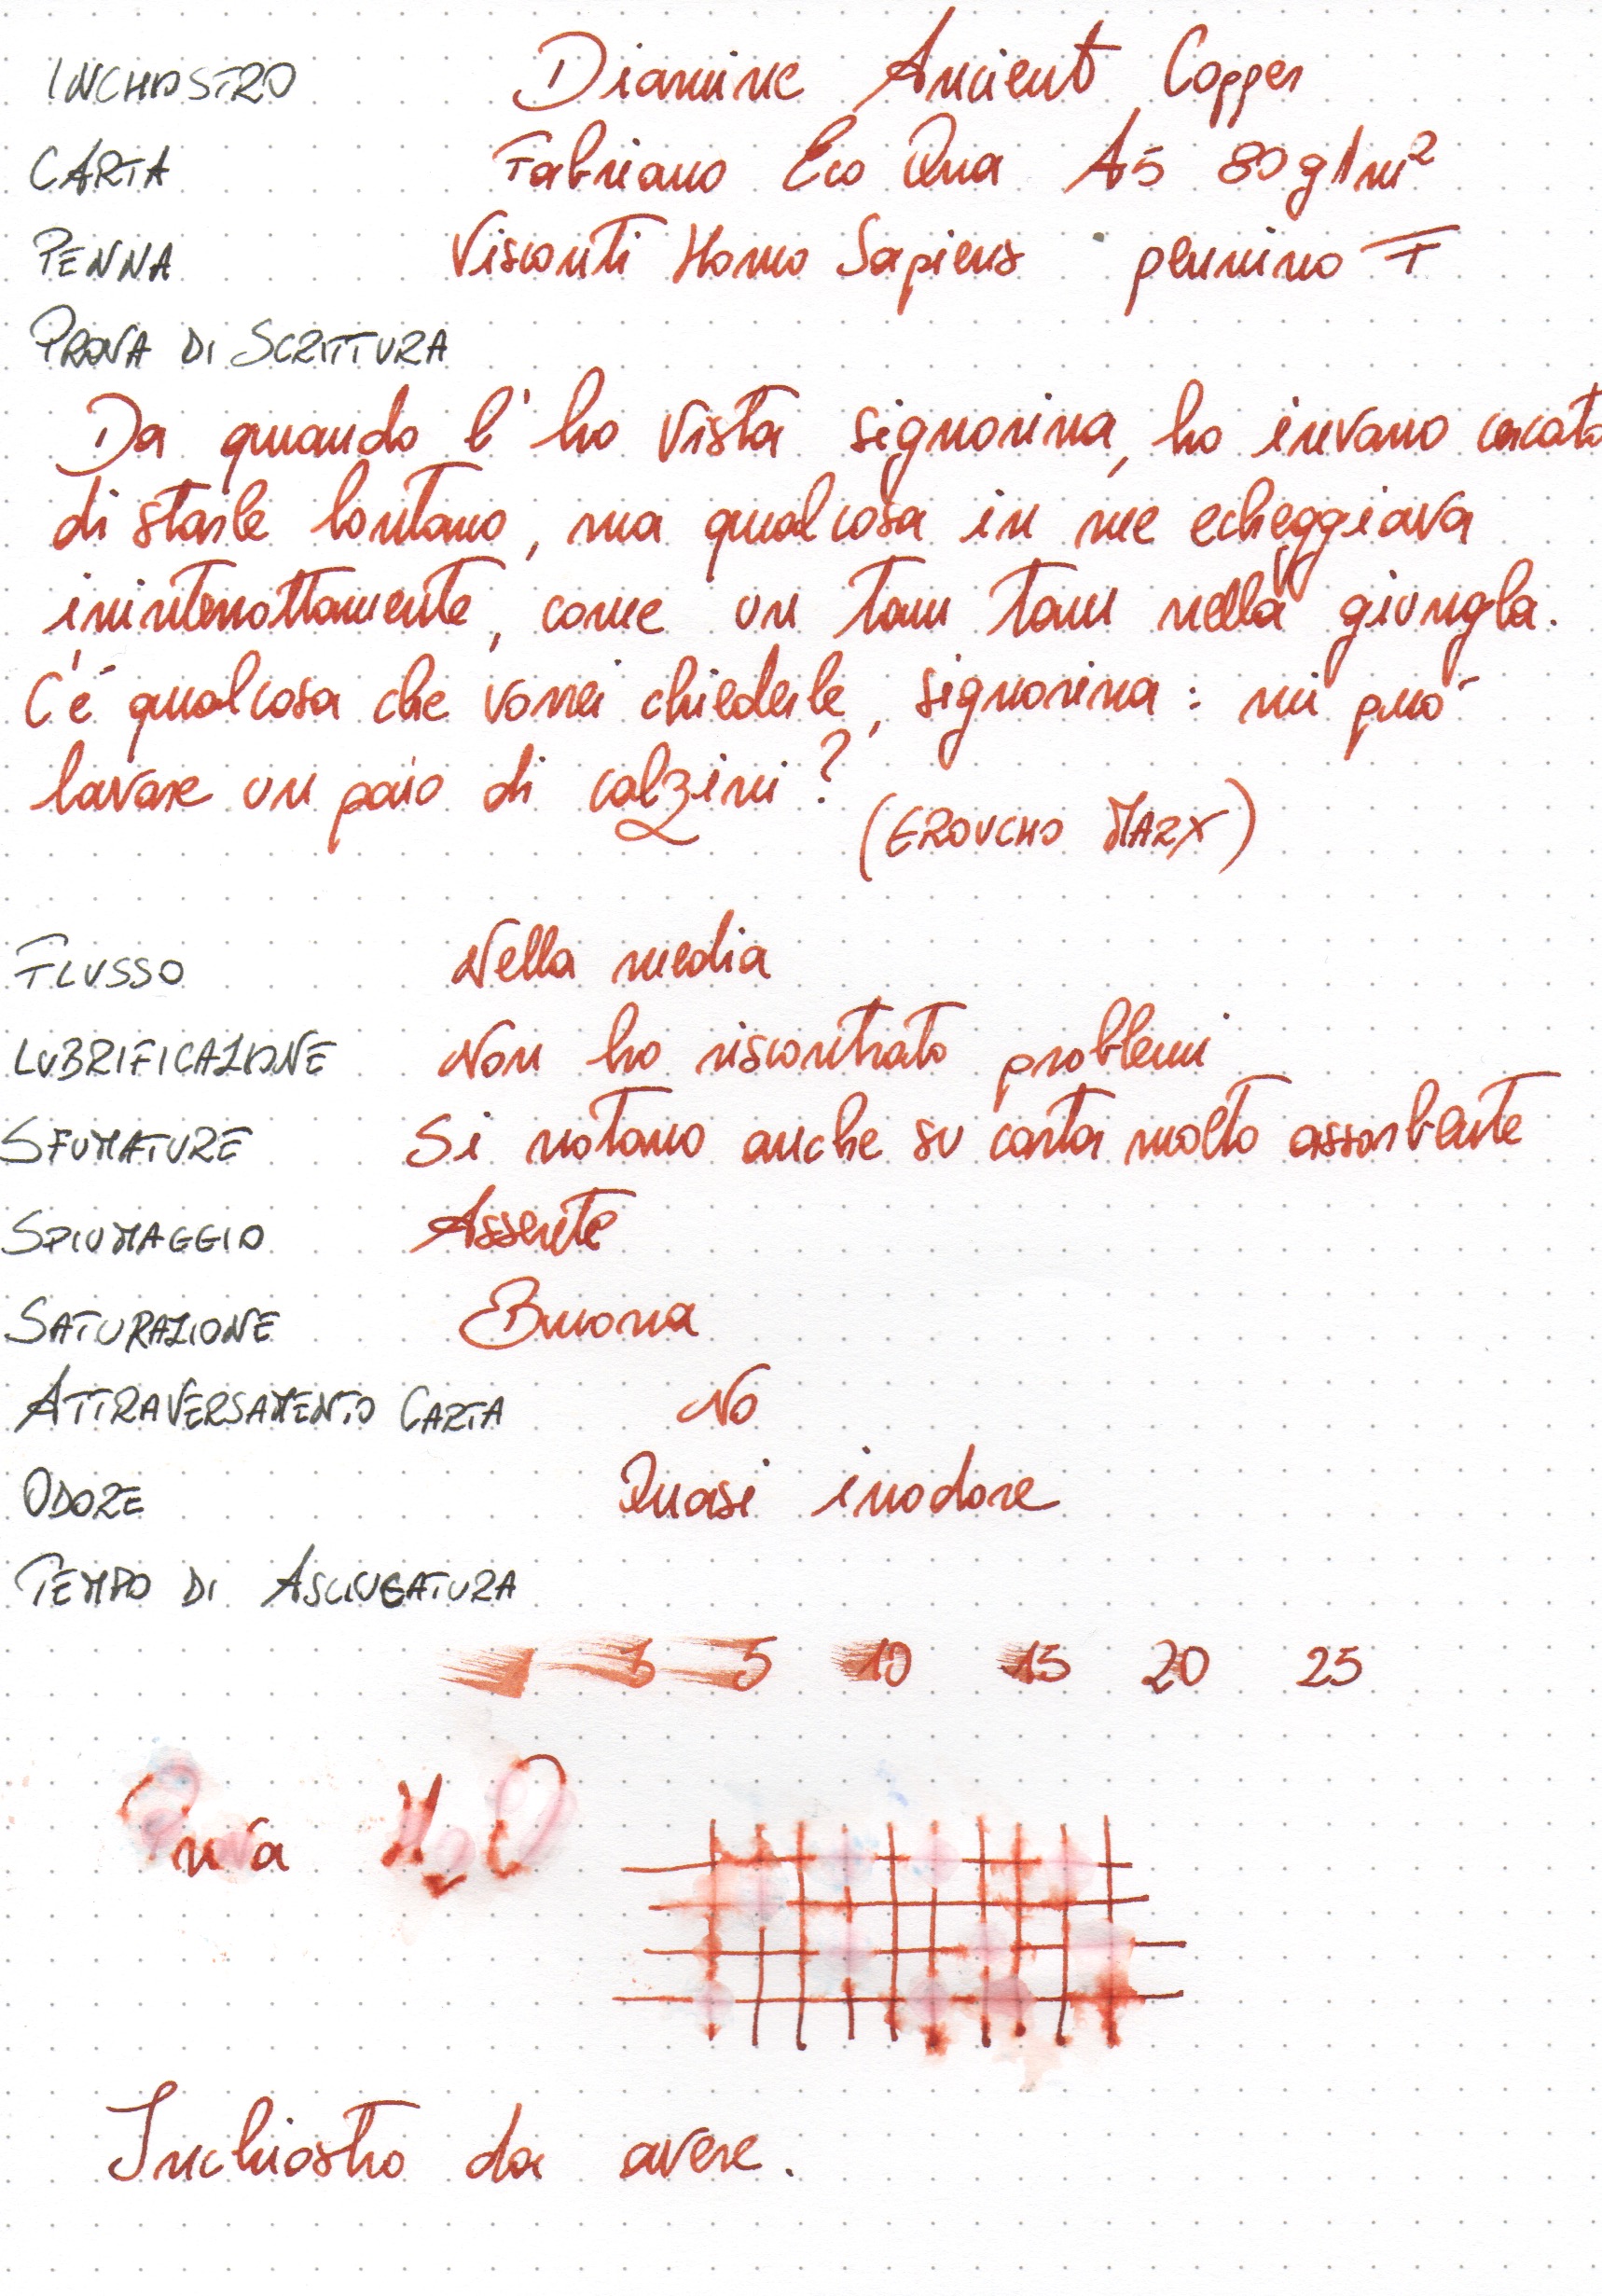 INCHIOSTRO Diamine Ancient Copper
CARTA Fabriano Eco Qua A5 80 g/m²
PENNA Visconti Homo Sapiens pennino F
PROVA DI SCRITTURA
Da quando l'ho vista signorina, ho invano cercato
di starle lontano, ma qualcosa in me echeggiava
inintenottamente, come un tam tam nella giungla.
C'è qualcosa che vorrei chiederle, signorina: mi può
lavare un paio di calzini?
(GROUCHO MARX)
FLUSSO Nella media
LUBRIFICAZIONE Non ho riscontrato problemi
SFUMATURE Si notano anche su carta molto assorbente
SPIUMAGGIO Assente
SATURAZIONE Buona
ATTRAVERSAMENTO CARTA No
ODORE Quasi inodore
TEMPO DI ASCIUGATURA
1 3 5 10 15 20 25
Prova H2O
Inchiostro da avere.